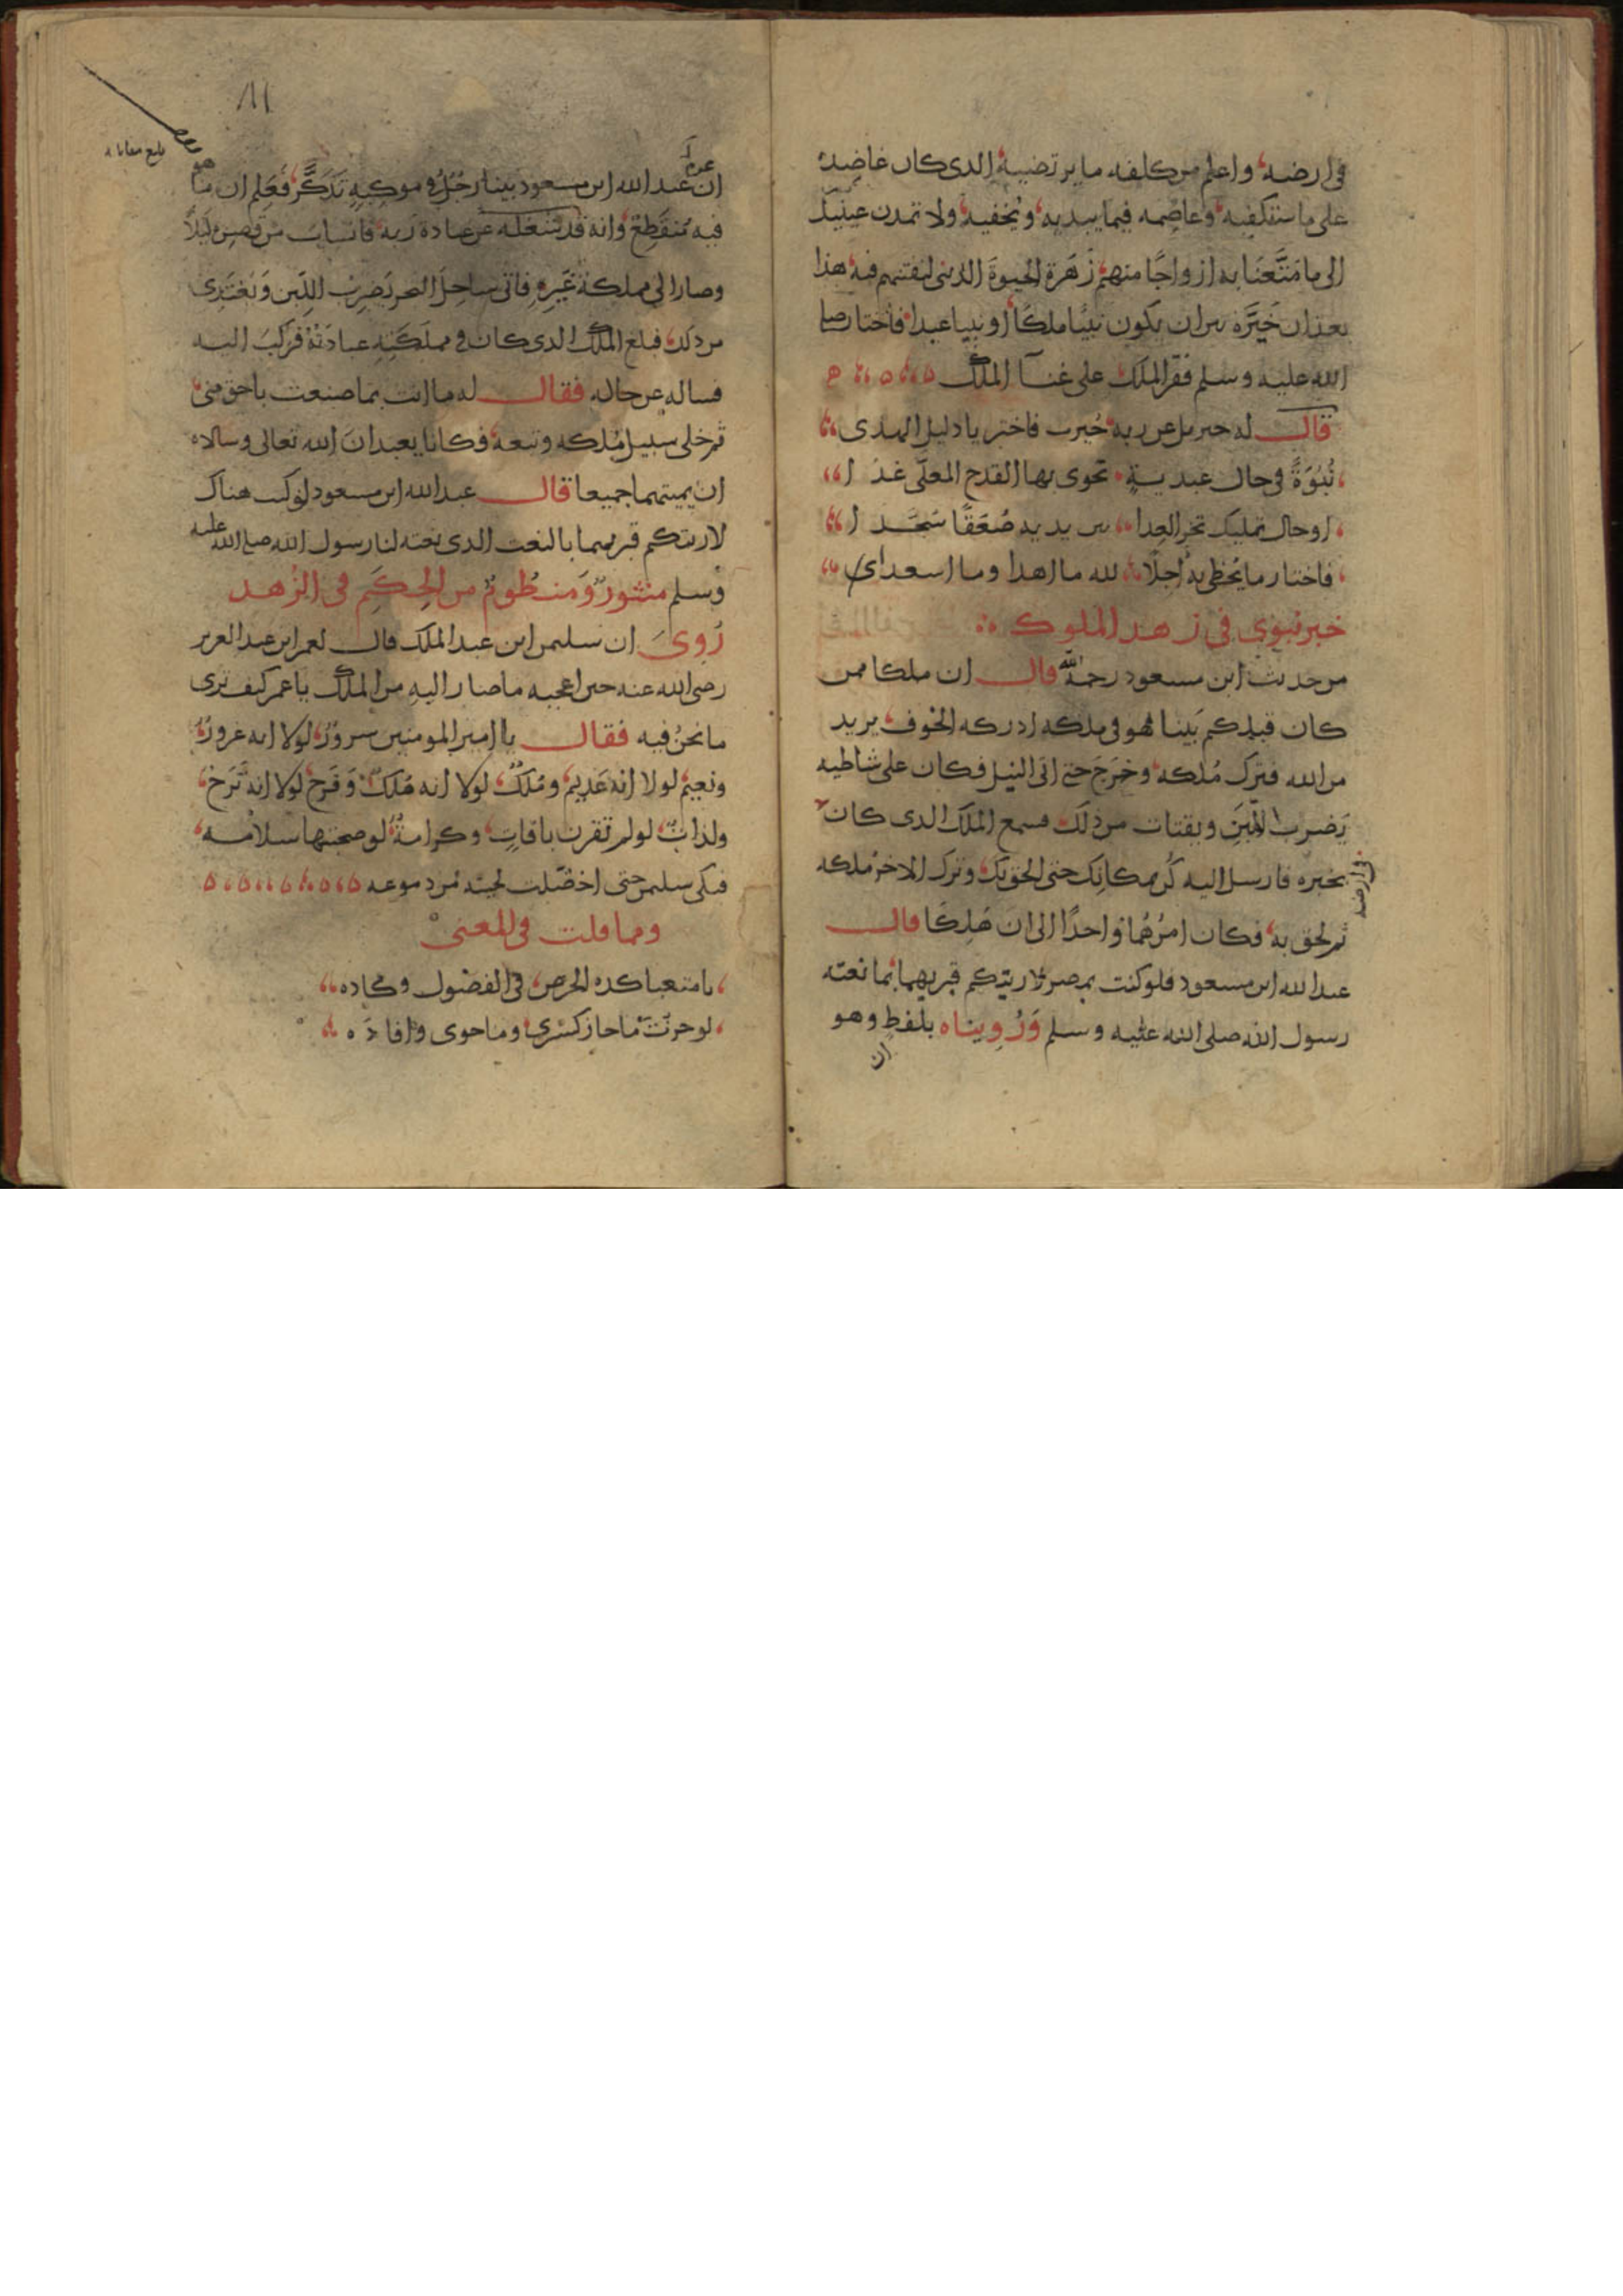 في ارضه، واعلم من كلفه ما يرتضيه الذي كان عاضده
على ما ستكفيه وعاصمه فيما يبديه، ويخفيه، ولا تمدن عينيك
الى ما متعنا به ازواجًا منهم زهرة الحيوة الدنيا لنفتنهم فيه، هذا
بعد ان خيَّره بين ان يكون نبيًّا ملكًا، او نبيا عبدا، فاختار صلى
الله عليه وسلم فقر الملك على غنآ الملك
قال له جبريل عن ربه خيرت فاختر يا دليل الهدى
نُبُوَةً في حال عبدية تحوى بها القدح المعلّى غدا
او حال تمليك تخر العدا بين يديه صُعَقًا سُجَّدا
فاختار ما يحظى به اجلا لله ما اهدا وما اسعدا
خبر نبوي في زهد الملوك
من حديث ابن مسعود رحمه الله قال ان ملكا ممن
كان قبلكم بَينا هو في ملكه ادركه الخوف، يريد
من الله فترك مُلكه، وخرَجَ حتى اتى النيل فكان على شاطيه
يَضرب اللَّبِن ويقتات من ذلك فسمع الملك الذي كان
في ارضه
بخبره فارسل اليه كُن بمكانك حتى الحق بك، وترك الاخر مُلكه
ثم لحق به، فكان امرُهُما واحدًا الى ان هَلِكَا قال
عبد الله ابن مسعود فلو كنت بمصر لاريتكم قبريهما بما نعته
رسول الله صلى الله عليه وسلم وَرُوِيناه بلفظ وهو
ان
١١
بلغ مقابلة
ان عبد الله ابن مسعود بينا رجُلٌ في موكبهِ تَذَكَّرَ، فَعَلِم ان ما هو
فيه مُنقَطِعٌ، وانه قد شغله عن عبادة ربه، فانساب من قصره ليلاً
وصار الى مملكة غَيرِهِ فاتى ساحِلَ البحر يَضرِبُ اللَّبِن وَيَغتَذِى
من ذلك، فبلغ الملك الذي كان في مملكَتِهِ عبادَتهُ فركب اليه
فساله عن حاله، فقال له ما انت بما صنعت باحق منى
ثم خلى سبيل مُلكه وتبعه، فكانا يعبدان الله تعالى وسالاه
ان يميتهما جميعا قال عبد الله ابن مسعود لو كنت هناك
لاريتكم قبريهما بالنعت الذي نعته لنا رسول الله صلى الله عليه
وسلم منثورٌ وَمنظومٌ من الحِكَمِ في الزُهد
رُوِيَ ان سليمن ابن عبد الملك قال لعمر ابن عبد العزيز
رضى الله عنه حين اعجبه ما صار اليهِ من الملك يا عمر كيف ترى
ما نحنُ فيه فقال يا امير المومنين سرورٌ، لولا انه غرورٌ،
ونعيمٌ، لولا انهُ عَديمٌ، ومُلكٌ، لولا انه هُلكٌ، وَفَرَحٌ، لولا انه تَرَحٌ،
ولذاتٌ، لو لم تقرن بافاتٍ، وكرامةٌ، لو صحبتها سلامة،
فبكى سليمن حتى اخضلت لحيته من دموعه
ومما قلت في المعنى
يا متعبا كده الحرص، في الفضول وكاده
لو حزتَ ما حاز كسرى وما حوى وافادَ ه